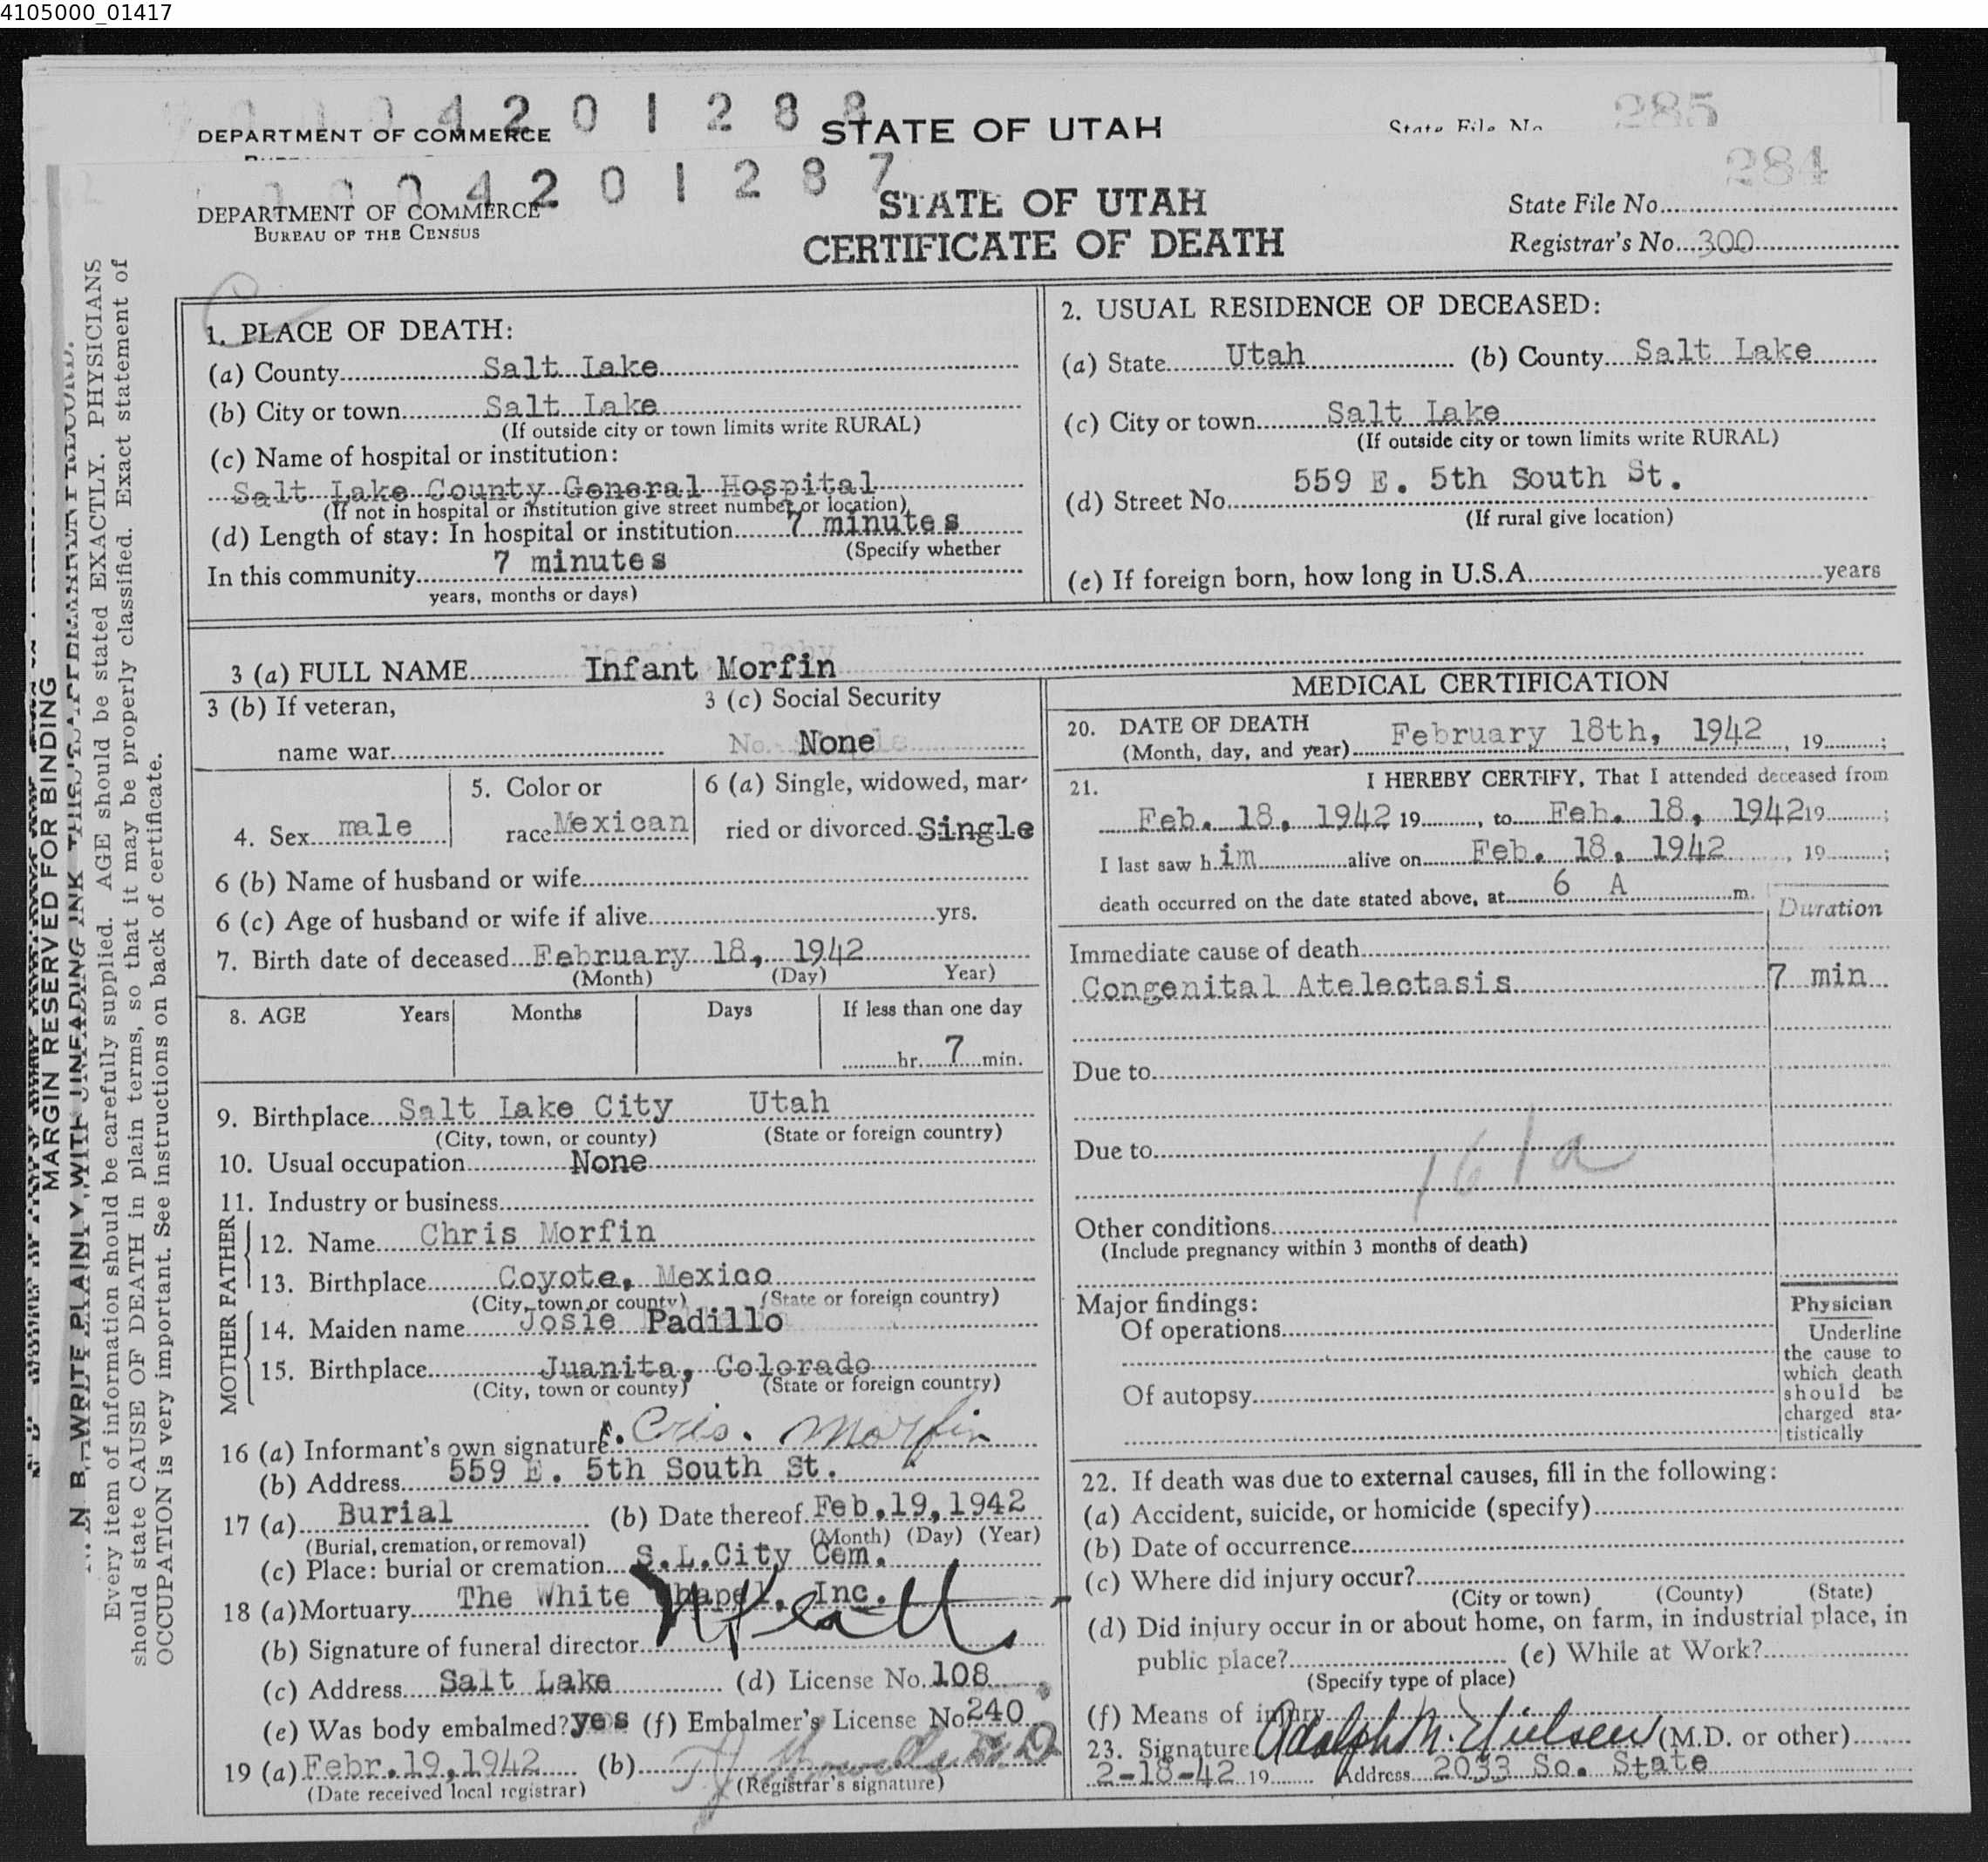 4105000_01417
4201288
DEPARTMENT OF COMMERCE
STATE OF UTAH
State File No.
285
4201287
284
DEPARTMENT OF COMMERCE
BUREAU OF THE CENSUS
STATE OF UTAH
CERTIFICATE OF DEATH
State File No.
Registrar's No. 300
MARGIN RESERVED FOR BINDING
N. B.—WRITE PLAINLY WITH UNFADING INK
Every item of information should be carefully supplied. AGE should be stated EXACTLY. PHYSICIANS
should state CAUSE OF DEATH in plain terms, so that it may be properly classified. Exact statement of
OCCUPATION is very important. See instructions on back of certificate.
1. PLACE OF DEATH:
(a) County Salt Lake
(b) City or town Salt Lake
(If outside city or town limits write RURAL)
(c) Name of hospital or institution:
Salt Lake County General Hospital
(If not in hospital or institution give street number or location)
(d) Length of stay: In hospital or institution 7 minutes
(Specify whether
In this community 7 minutes
years, months or days)
2. USUAL RESIDENCE OF DECEASED:
(a) State Utah (b) County Salt Lake
(c) City or town Salt Lake
(If outside city or town limits write RURAL)
559 E. 5th South St.
(d) Street No.
(If rural give location)
(e) If foreign born, how long in U.S.A. years
3 (a) FULL NAME Infant Morfin
3 (b) If veteran,
name war
3 (c) Social Security
No. None
4. Sex male
5. Color or
race Mexican
6 (a) Single, widowed, mar-
ried or divorced Single
6 (b) Name of husband or wife
6 (c) Age of husband or wife if alive yrs.
7. Birth date of deceased February 18, 1942
(Month) (Day) Year)
8. AGE Years Months Days If less than one day
hr. 7 min.
9. Birthplace Salt Lake City Utah
(City, town, or county) (State or foreign country)
10. Usual occupation None
11. Industry or business
FATHER
12. Name Chris Morfin
13. Birthplace Coyote, Mexico
(City, town or county) (State or foreign country)
MOTHER
14. Maiden name Josie Padillo
15. Birthplace Juanita, Colorado
(City, town or county) (State or foreign country)
16 (a) Informant's own signature Cris. Morfin
(b) Address 559 E. 5th South St.
17 (a) Burial (b) Date thereof Feb.19,1942
(Burial, cremation, or removal) (Month) (Day) (Year)
(c) Place: burial or cremation S.L.City Cem.
18 (a) Mortuary The White Chapel, Inc.
(b) Signature of funeral director
(c) Address Salt Lake (d) License No. 108
(e) Was body embalmed? yes (f) Embalmer's License No. 240
19 (a) Febr.19,1942 (b)
(Date received local registrar) (Registrar's signature)
MEDICAL CERTIFICATION
20. DATE OF DEATH
(Month, day, and year) February 18th, 1942, 19 ;
21. I HEREBY CERTIFY, That I attended deceased from
Feb. 18, 1942 19 , to Feb. 18, 1942 19 ;
I last saw him alive on Feb. 18, 1942 , 19 ;
death occurred on the date stated above, at 6 A m.
Duration
Immediate cause of death
Congenital Atelectasis 7 min
Due to
Due to
161a
Other conditions
(Include pregnancy within 3 months of death)
Major findings:
Of operations
Of autopsy
Physician
Underline
the cause to
which death
should be
charged sta-
tistically
22. If death was due to external causes, fill in the following:
(a) Accident, suicide, or homicide (specify)
(b) Date of occurrence
(c) Where did injury occur?
(City or town) (County) (State)
(d) Did injury occur in or about home, on farm, in industrial place, in
public place? (e) While at Work?
(Specify type of place)
(f) Means of injury
23. Signature Adolph M. Nielsen (M.D. or other)
2-18-42 19 Address 2033 So. State